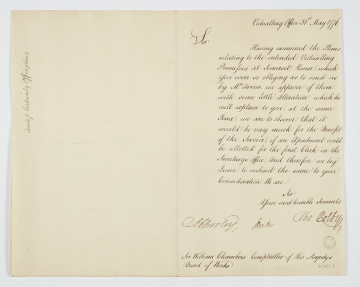 Victualling Office 31st May 1776
Sir
Having examined the Plans
relating to the intended Victualling
Premisses at Somerset House; which
you were so obliging as to send us
by Mr. Brown, we approve of them
with some little alteration which he
will explain to you; at the same
time; we are to observe that it
would be very much for the Benefit
of the Service; if an Apartment could
be allotted for the first Clerk in the
Secretarys Office; And therefore we beg
leave to submit the same to your
Consideration We are
Sir
Your most humble Servants
Tho. Colby
Sir William Chambers Comptroller of His Majestys
Board of Works